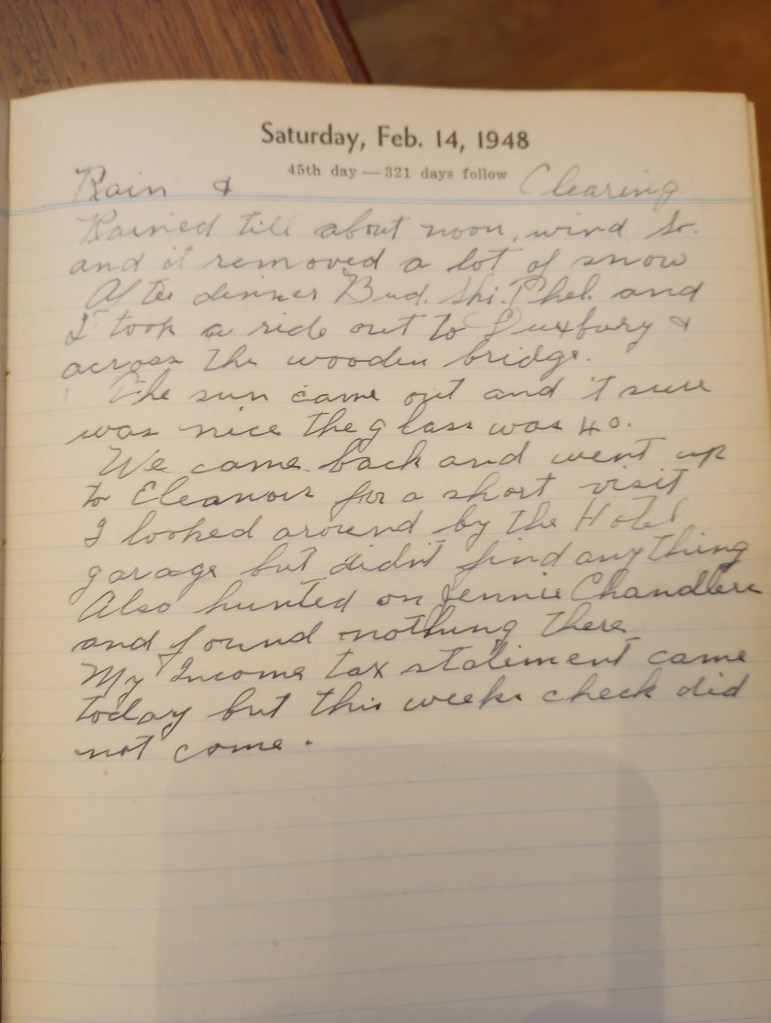 Saturday, Feb. 14, 1948
45th day — 321 days follow
Rain & Clearing
Rained till about noon, wind So.
and it removed a lot of snow
After dinner Bud. Shi. Phel. and
I took a ride out to Duxbury &
across the wooden bridge.
The sun came out and it sure
was nice the glass was 40.
We came back and went up
to Eleanors for a short visit
I looked around by the Hotel
garage but didn't find anything
Also hunted on Jennie Chandlers
and found nothing there
My Income tax statement came
today but this weeks check did
not come.